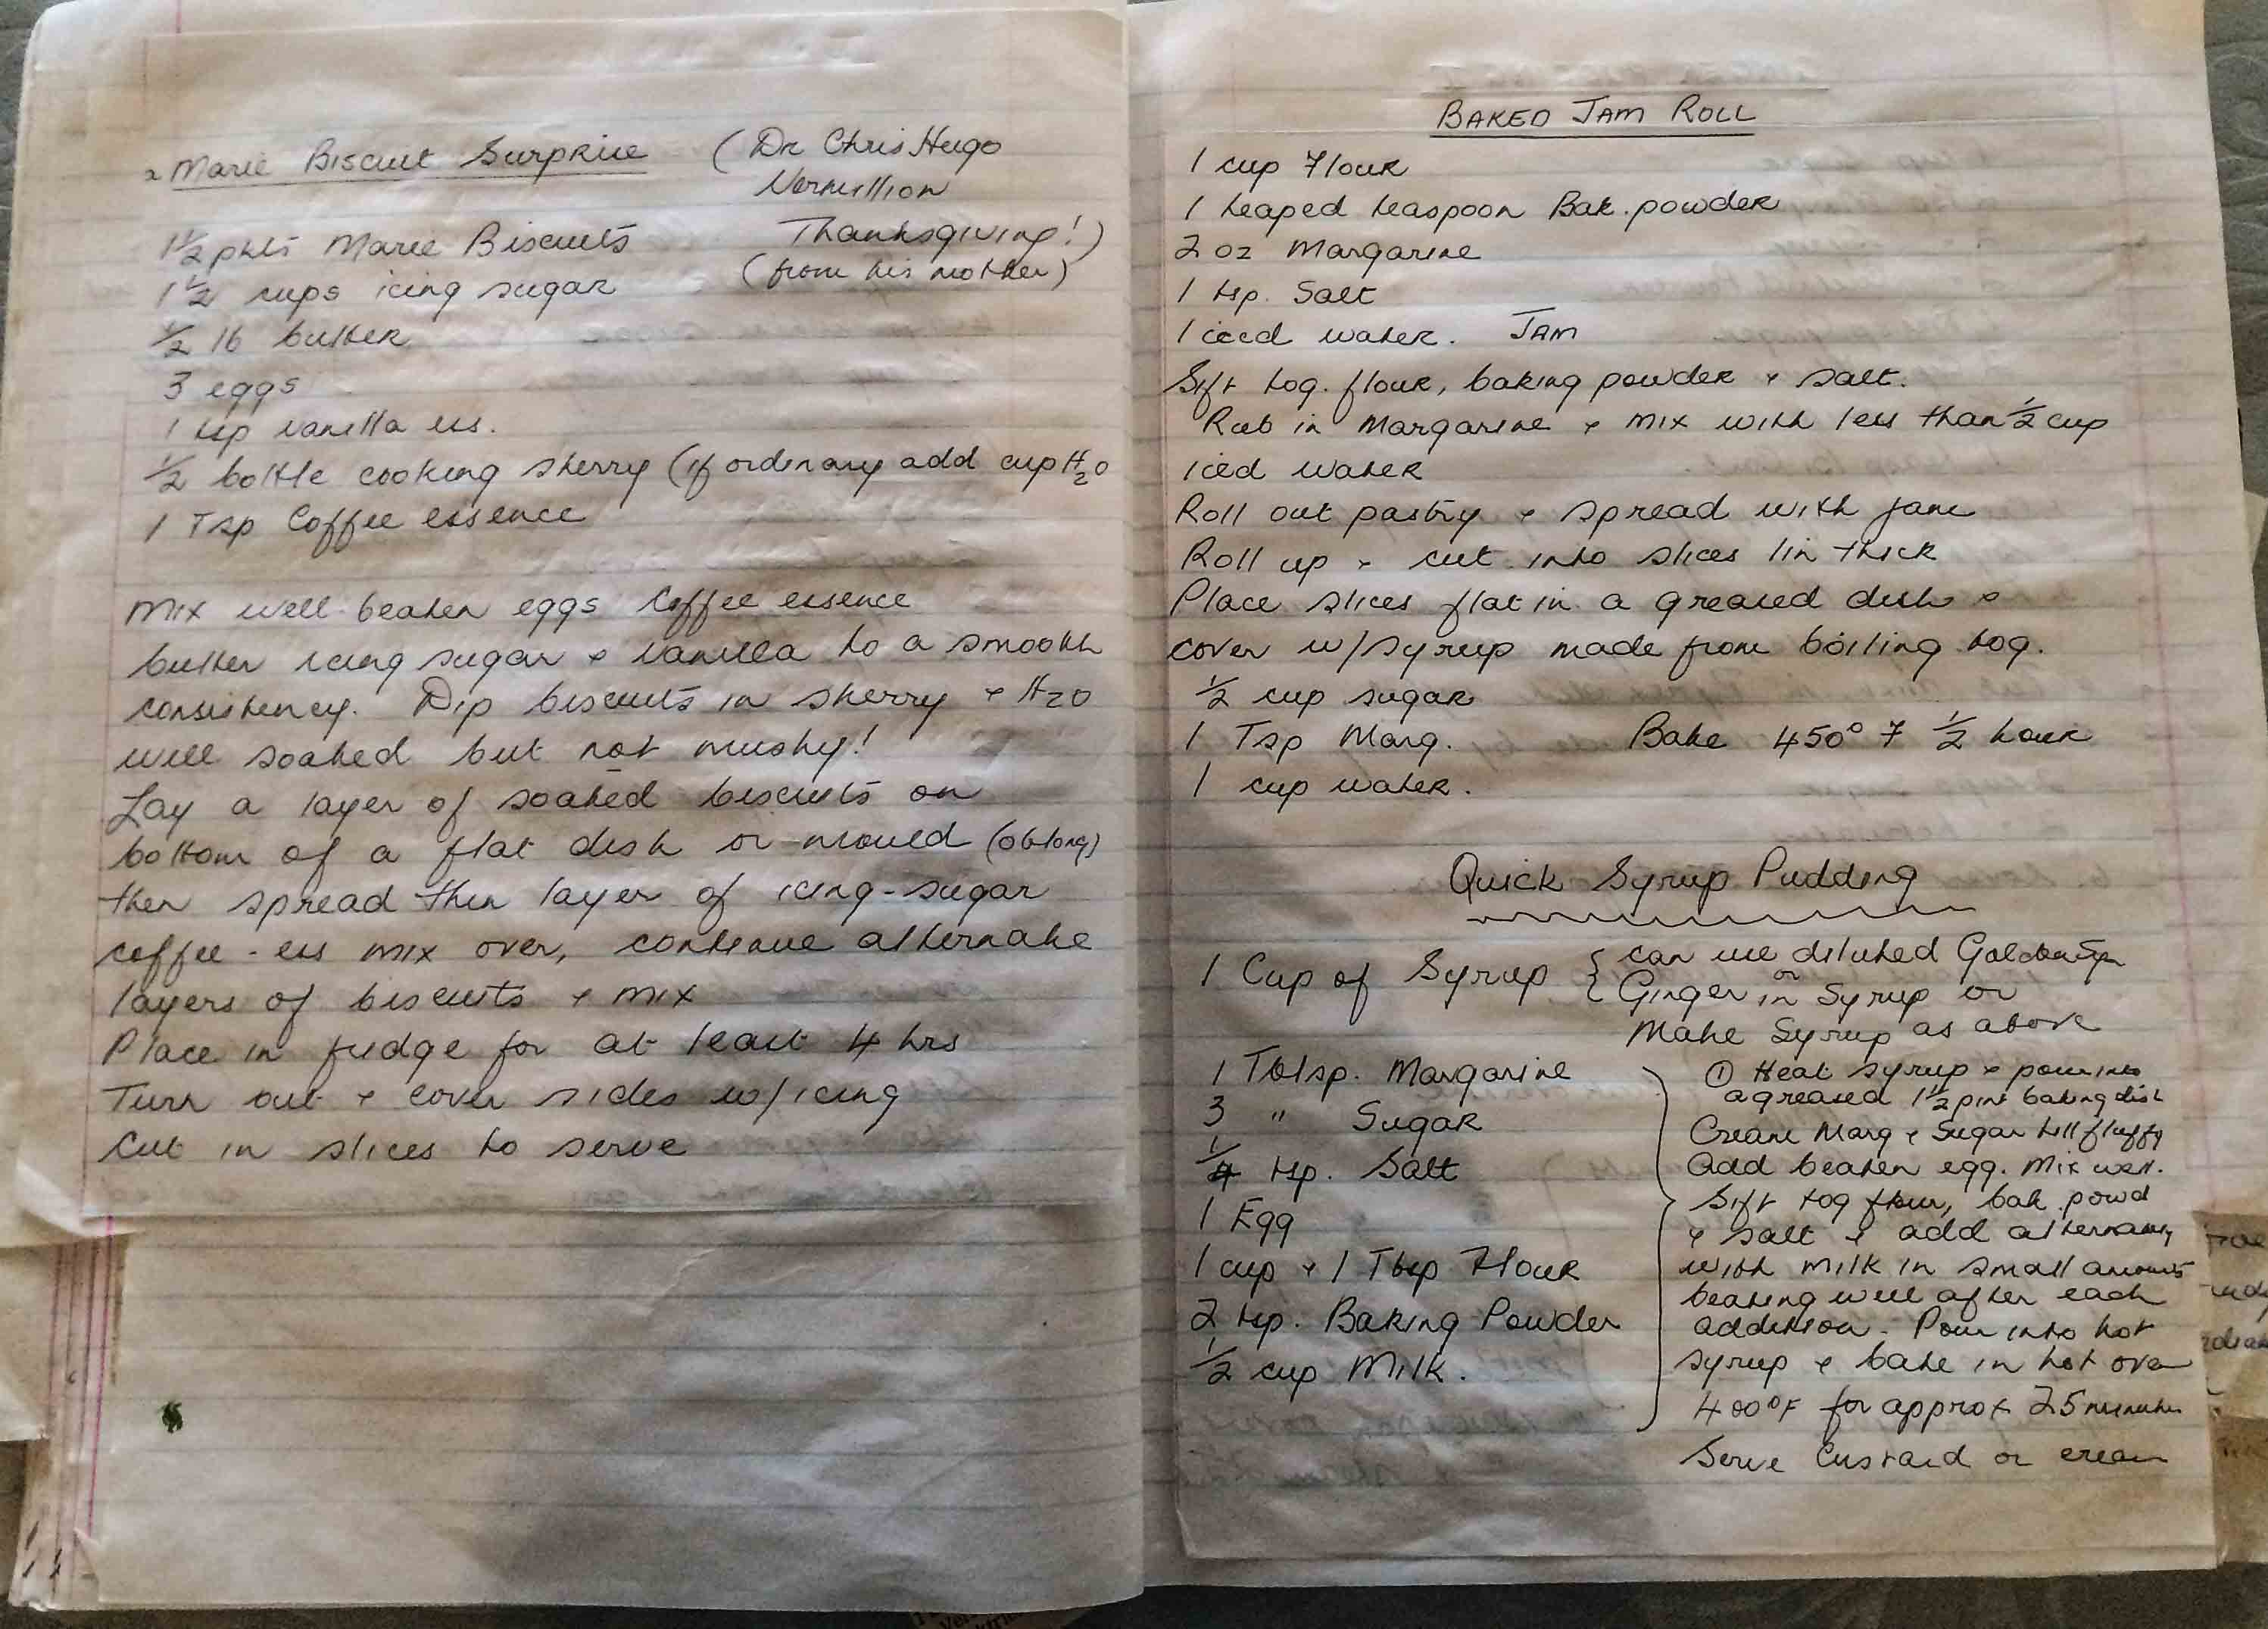 Marie Biscuit Surprise (Dr Chris Hugo
Vermillion
Thanksgiving!)
(from his mother)
1½ pkts Marie Biscuits
1½ cups icing sugar
½ lb butter
3 eggs
1 tsp vanilla ess.
½ bottle cooking sherry (if ordinary add cup H₂O
1 Tsp Coffee essence
Mix well-beaten eggs Coffee essence
butter icing sugar + vanilla to a smooth
consistency. Dip biscuits in sherry + H₂O
well soaked but not mushy!
Lay a layer of soaked biscuits on
bottom of a flat dish or mould (oblong)
then spread thin layer of icing-sugar
coffee-ess mix over, continue alternate
layers of biscuits + mix
Place in fridge for at least 4 hrs
Turn out + cover sides w/icing
Cut in slices to serve
BAKED JAM ROLL
1 cup Flour
1 heaped teaspoon Bak. powder
2 oz Margarine
1 tsp. Salt
1 iced water. JAM
Sift tog. flour, baking powder + salt.
Rub in Margarine + mix with less than ½ cup
iced water
Roll out pastry + spread with jam
Roll up + cut into slices 1in thick
Place slices flat in a greased dish +
cover w/syrup made from boiling tog.
½ cup sugar
1 Tsp Marg. Bake 450° F ½ hour
1 cup water.
Quick Syrup Pudding
1 Cup of Syrup { can use diluted Golden Syrup
or
Ginger in Syrup or
Make Syrup as above
1 Tblsp. Margarine
3 " Sugar
¼ tsp. Salt
1 Egg
1 cup + 1 Tbsp Flour
2 tsp. Baking Powder
½ cup Milk.
① Heat syrup + pour into
a greased 1½ pint baking dish
Cream Marg + Sugar till fluffy
Add beaten egg. Mix well.
Sift tog flour, bak. powd
+ salt + add alternately
with milk in small amounts
beating well after each
addition. Pour into hot
syrup + bake in hot oven
400°F for approx 25 minutes
Serve Custard or cream